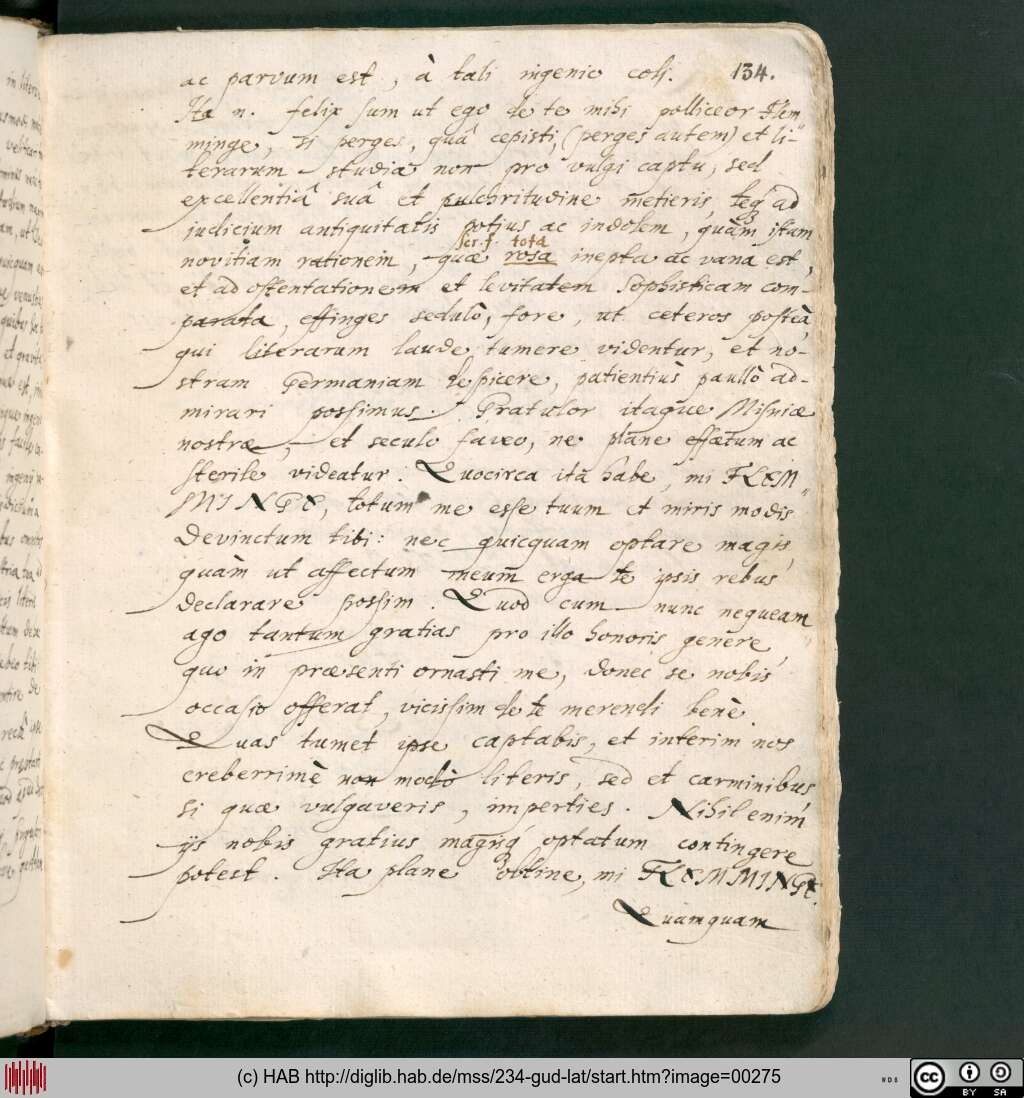 134.
ac parvum est, à tali ingenio coli.
Ita n. felix sum ut ego de te mihi polliceor Flem-
minge, si perges, quâ cepisti, (perges autem) et li-
terarum studia non pro vulgi captu, sed
excellentiâ suâ et pulchritudine metieris, teq́ ad
judicium antiquitatis potius ac indolem, quàm istam
scr. f. tota
novitiam rationem, quæ rosa inepta ac vana est,
et ad ostentationem et levitatem Sophisticam com-
parata, effinges sedulò, fore, ut ceteros posteà,
qui literarum laude tumere videntur, et no-
stram Germaniam despicere, patientiùs paullò ad-
mirari possimus. Gratulor itaque Misniæ
nostræ, et seculo faveo, ne plane effœtum ac
sterile videatur. Quocirca ità habe, mi FLEM-
MINGE, totum me esse tuum et miris modis
devinctum tibi: nec quicquam optare magis,
quàm ut affectum meum erga te ipsis rebus
declarare possim. Quod cum nunc nequeam
ago tantum gratias pro illo honoris genere,
quo in præsenti ornasti me, donec se nobis
occasio offerat, vicissim de te merendi benè.
Quas tumet ipse captabis, et interim nos
creberrimè non modò literis, sed et carminibus
si quæ vulgaveris, imperties. Nihil enim
ijs nobis gratius magisq́ optatum contingere
potest. Ita plane obtine, mi FLEMMINGE.
Quamquam
(c) HAB http://diglib.hab.de/mss/234-gud-lat/start.htm?image=00275
cc BY SA